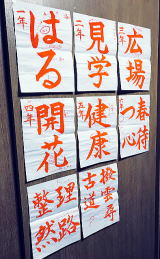 一年
はる
二年
見学
三年
広場
四年
開花
五年
健康
六年
春待
つ心
整然
理路
古道
撥雲尋